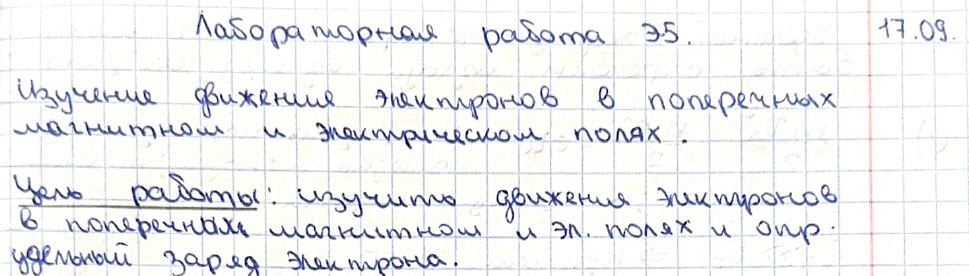 Лабораторная работа Э5. 17.09.
Изучение движения электронов в поперечных
магнитном и электрическом полях.
Цель работы: изучить движения электронов
в поперечных магнитном и эл. полях и опр.
удельный заряд электрона.